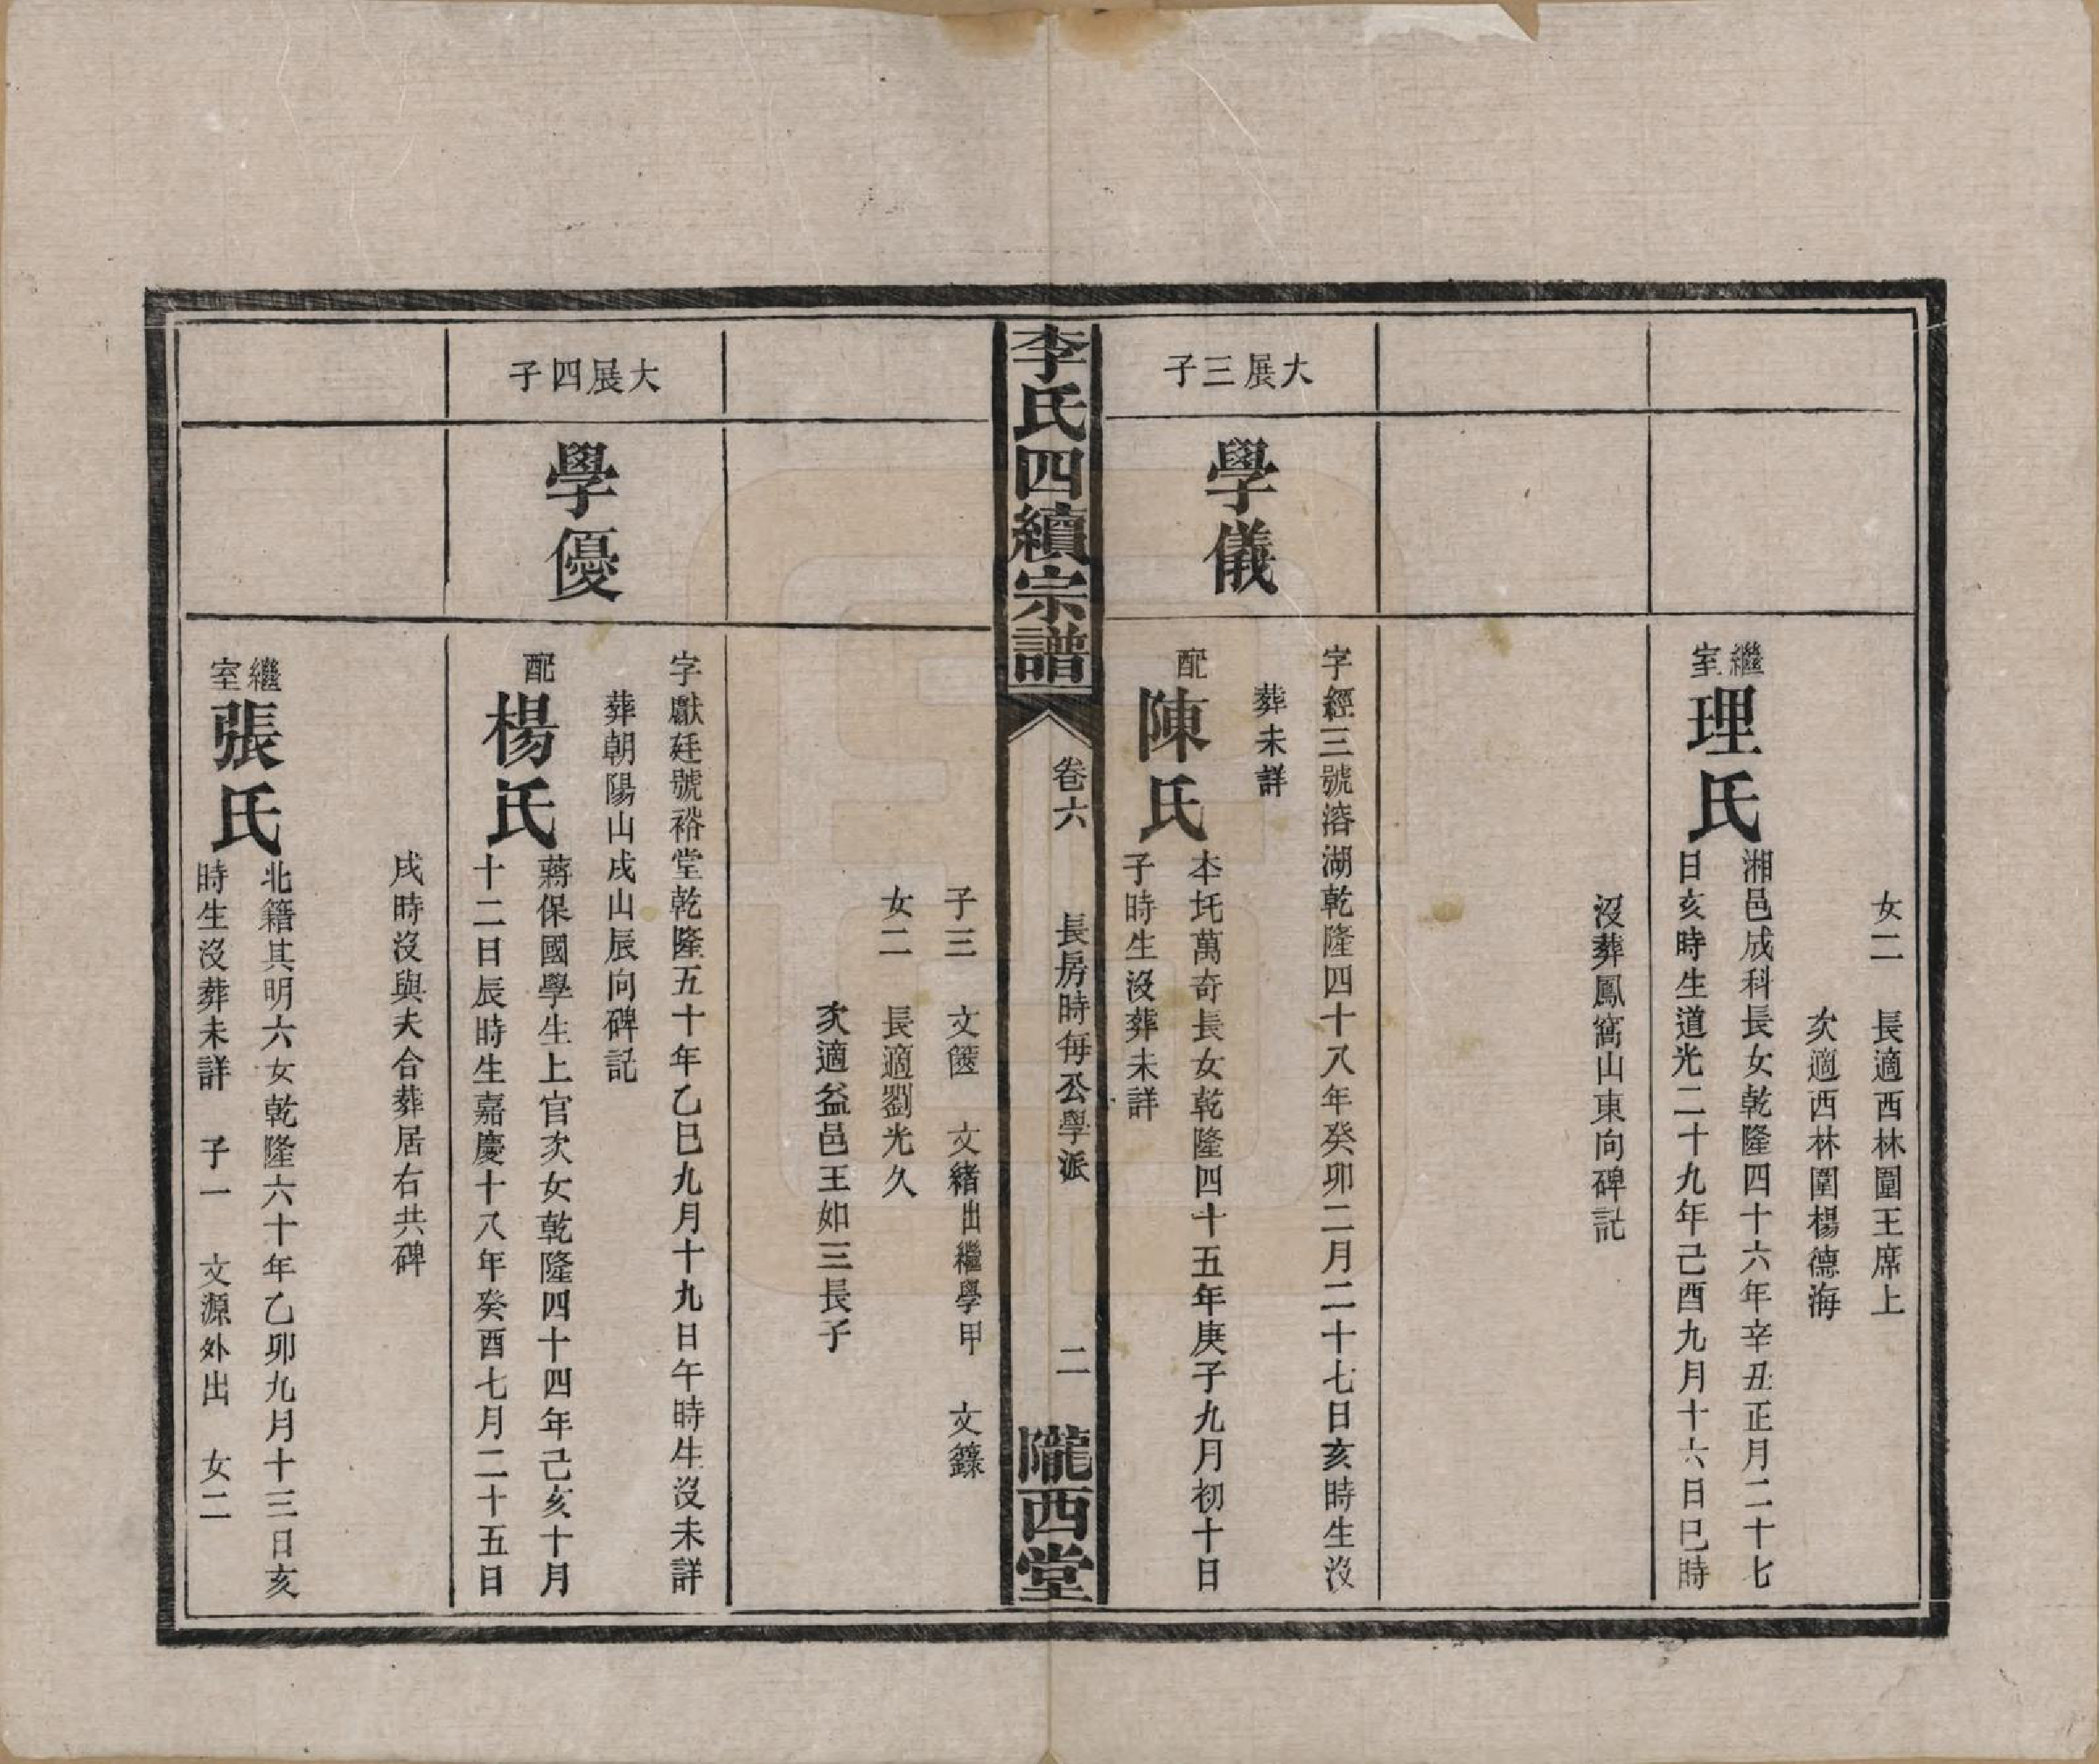 女二　長適西林圍王席上
次適西林圍楊德海
繼室
理氏
湘邑成科長女乾隆四十六年辛丑正月二十七
日亥時生道光二十九年己酉九月十六日巳時
沒葬鳳窩山東向碑記
大展三子
學儀
字經三號溶湖乾隆四十八年癸卯二月二十七日亥時生沒
葬未詳
配
陳氏
本圫萬奇長女乾隆四十五年庚子九月初十日
子時生沒葬未詳
李氏四續宗譜
卷六
長房時每公學派
二
隴西堂
子三　文篋　文緒出繼學甲　文籙
女二　長適劉光久
次適益邑王如三長子
大展四子
學優
字獻廷號裕堂乾隆五十年乙巳九月十九日午時生沒未詳
葬朝陽山戌山辰向碑記
配
楊氏
蔣保國學生上官次女乾隆四十四年己亥十月
十二日辰時生嘉慶十八年癸酉七月二十五日
戌時沒與夫合葬居右共碑
繼室
張氏
北籍其明六女乾隆六十年乙卯九月十三日亥
時生沒葬未詳　子一　文源外出　女二